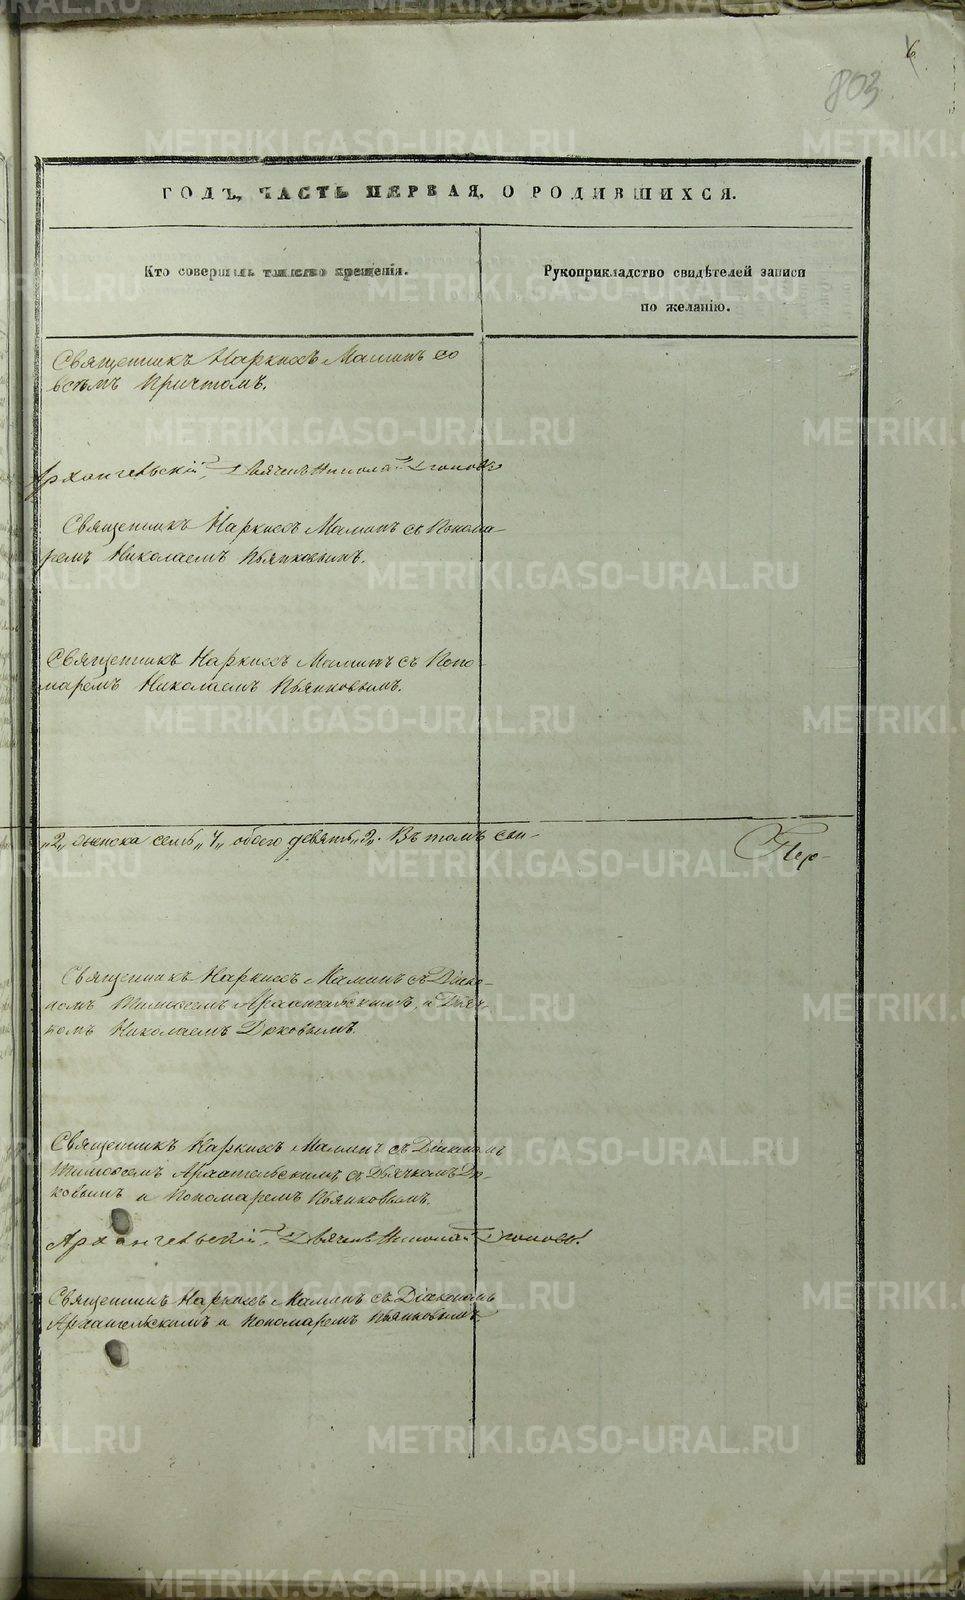 6
803
ГОДЪ, ЧАСТЬ ПЕРВАЯ, О РОДИВШИХСЯ.
Кто совершалъ таинство крещенія.
Рукоприкладство свидѣтелей записи
по желанію.
Священникъ Наркисъ Маминъ со
всѣмъ Причтомъ.
Архангельскій, Дьячекъ Николай
Священникъ Наркисъ Маминъ съ Понома-
ремъ Николаемъ Пьянковымъ.
Священникъ Наркисъ Маминъ съ Поно-
маремъ Николаемъ Пьянковымъ.
„2„ женска семь „7„ обоего девять „9„. Въ томъ сви-
Священникъ Наркисъ Маминъ съ Діако-
номъ Тимоѳеемъ Архангельскимъ, и Дьяч-
комъ Николаемъ Дюковымъ.
Священникъ Наркисъ Маминъ съ Діакономъ
Тимоѳеемъ Архангельскимъ съ Дьячкомъ Дю-
ковымъ и Пономаремъ Пьянковымъ.
Архангельскій, Дьячекъ Николай
Священникъ Наркисъ Маминъ съ Діакономъ
Архангельскимъ и Пономаремъ Пьянковымъ.
METRIKI.GASO-URAL.RU